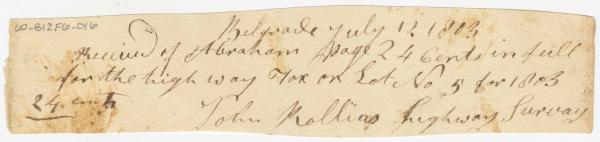 60-B12F6-016
Belgrade July 12 1803
Received of Abraham Page 24 Cents in full
for the high way Tax on Lot No 5 for 1803
24 cents
John Rollins highway Survay